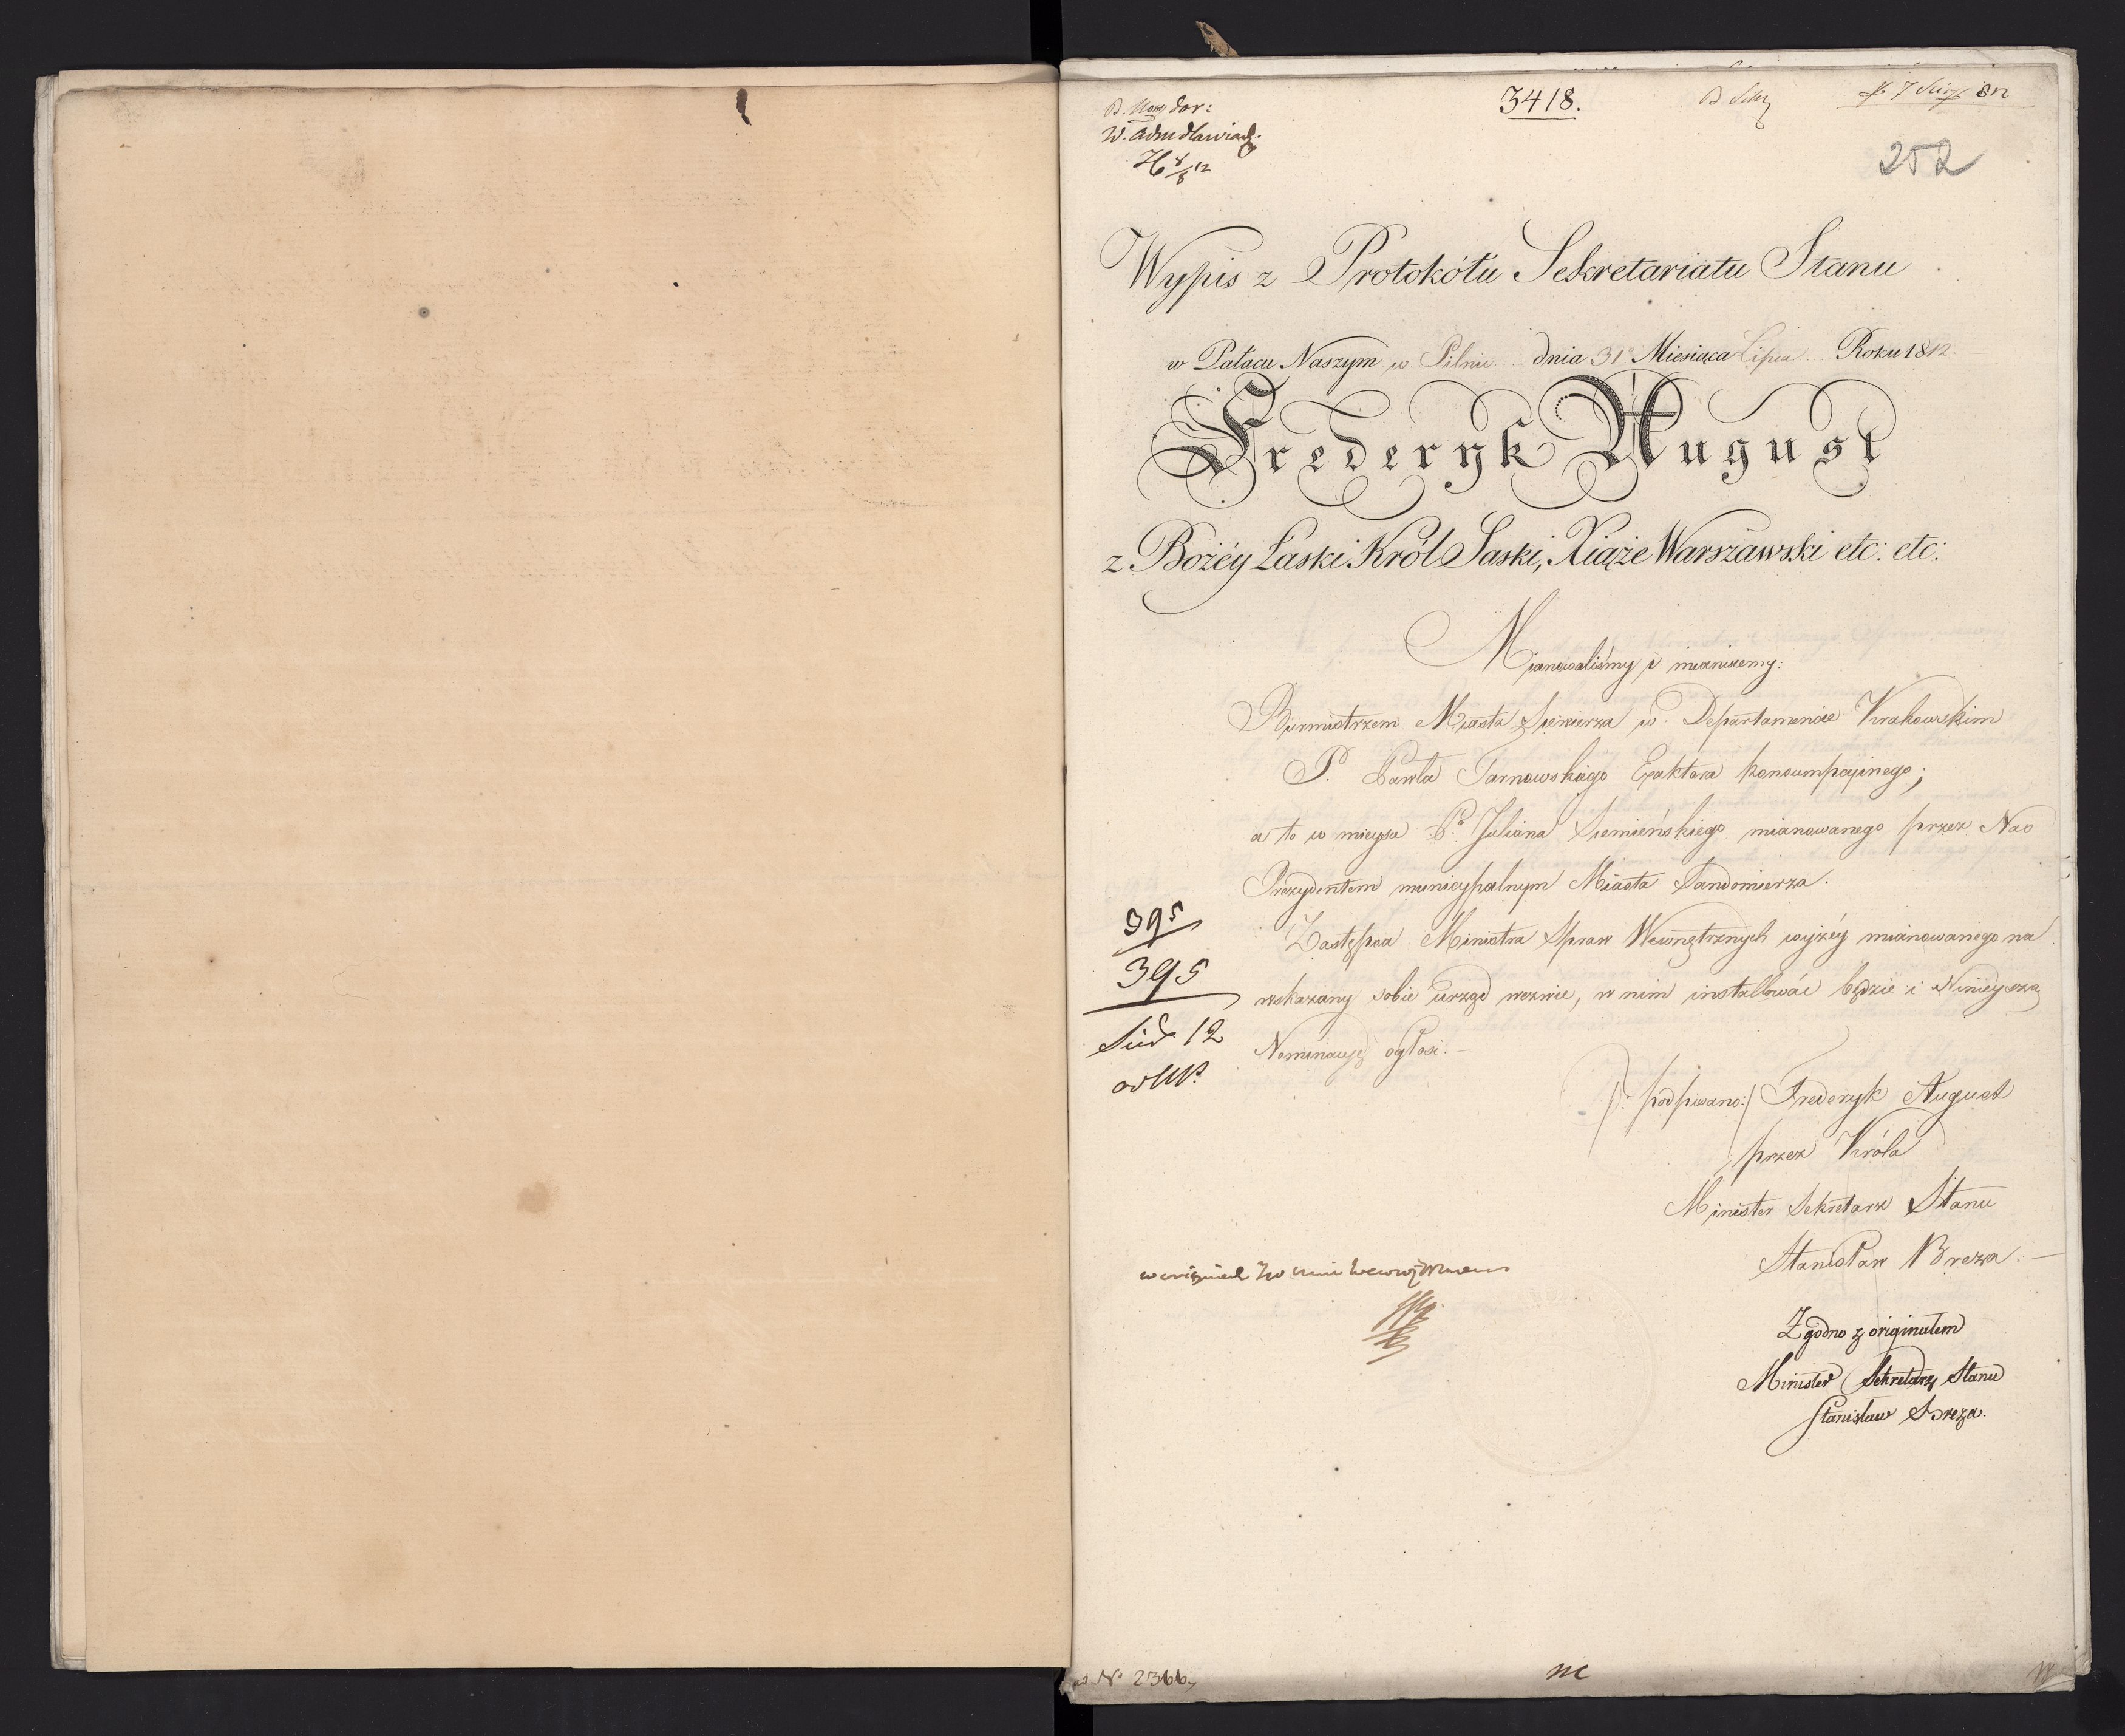 3418.
252
Wypis z Protokółu Sekretariatu Stanu
w Pałacu Naszym w Pilnic dnia 31º Miesiąca Lipca Roku 1812
Frederyk August
z Bożéy Łaski Król Saski, Xiąże Warszawski etc: etc:
Mianowaliśmy i mianuiemy:
Burmistrzem Miasta Siewierza w Departamencie Krakowskim
P. Pawła Tarnowskiego Exaktora konsumpcyinego;
a to w mieysce Pª Juliana Siemieńskiego mianowanego przez Nas
Prezydentem municypalnym Miasta Sandomierza.
Zastępca Ministra Spraw Wewnętrznych wyżéy mianowanego na
wskazany sobie urząd wezwie, w nim installować będzie i Ninieyszą
Nominacyę ogłosi.
395
395
12
/: podpisano:/ Frederyk August
przez Króla
Minister Sekretarz Stanu
Stanisław Breza.
Zgodno z originałem
Minister Sekretarz Stanu
Stanisław Breza.
Nº 2366